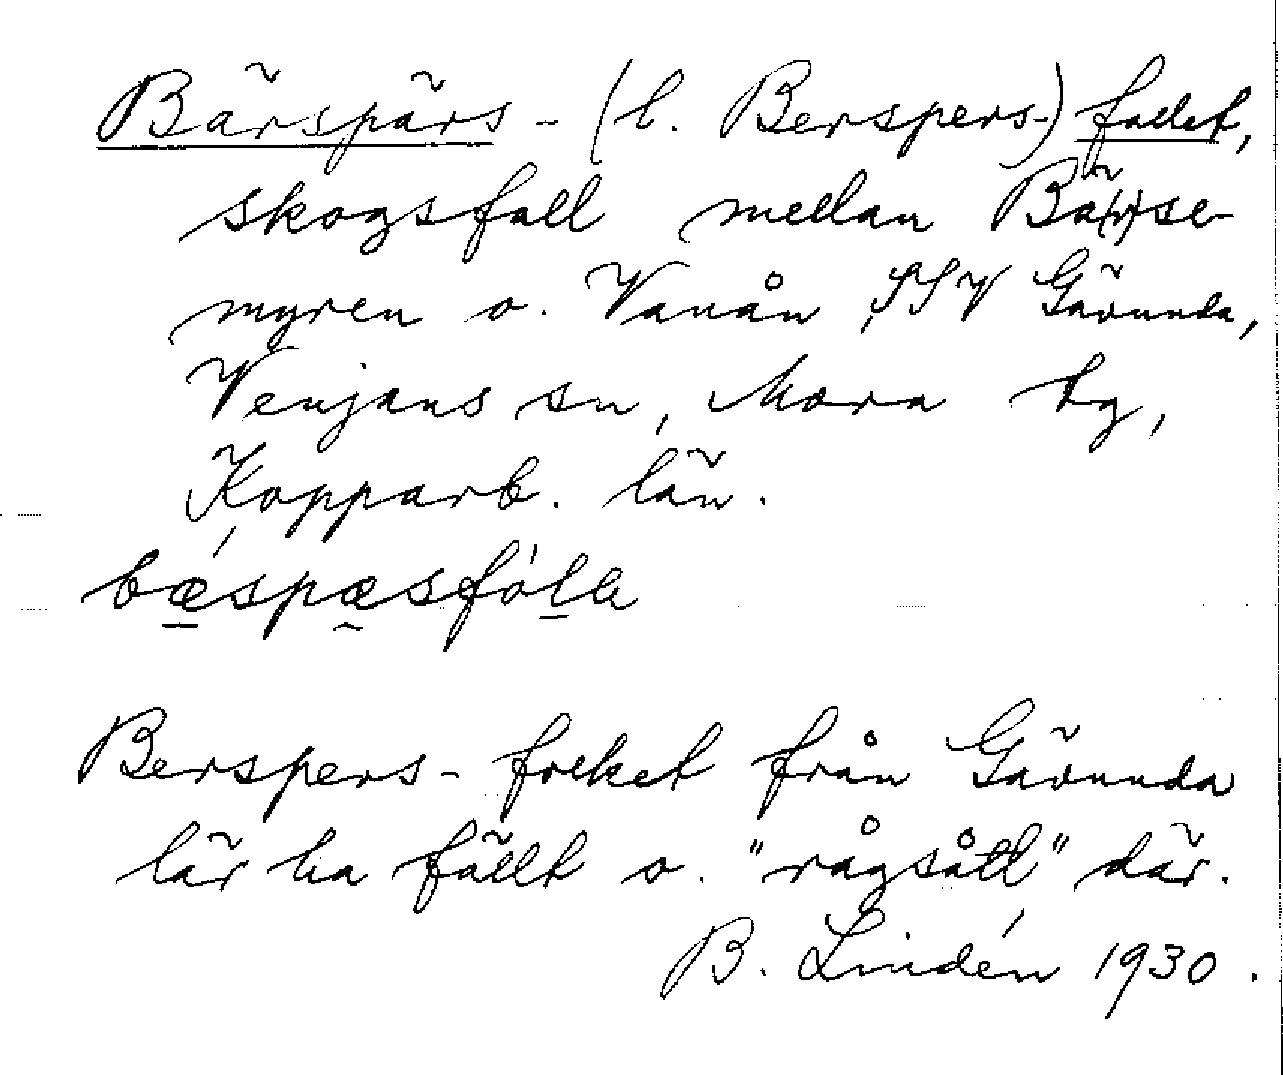 Bärspärs- (l. Berspers-) fallet,
skogsfall mellan Bä(r)se-
myren o. Vanån, SSV Gävunda,
Venjans sn, Mora tg,
Kopparb. län.
bæ̱spæ̮sfòḻḷa
Berspers-folket från Gävunda
lär ha fällt o. "rågsått" där.
B. Lindén 1930.